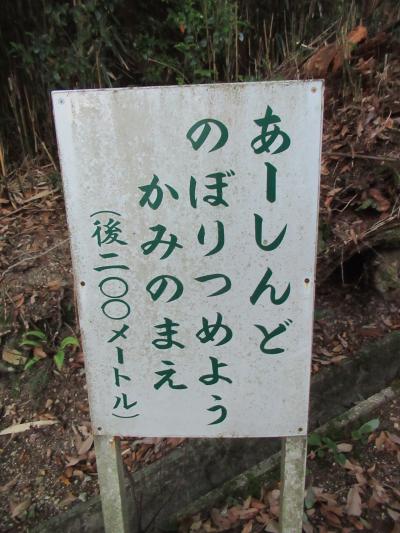 あーしんど
のぼりつめよぅ
かみのまえ
(後二〇〇メートル)